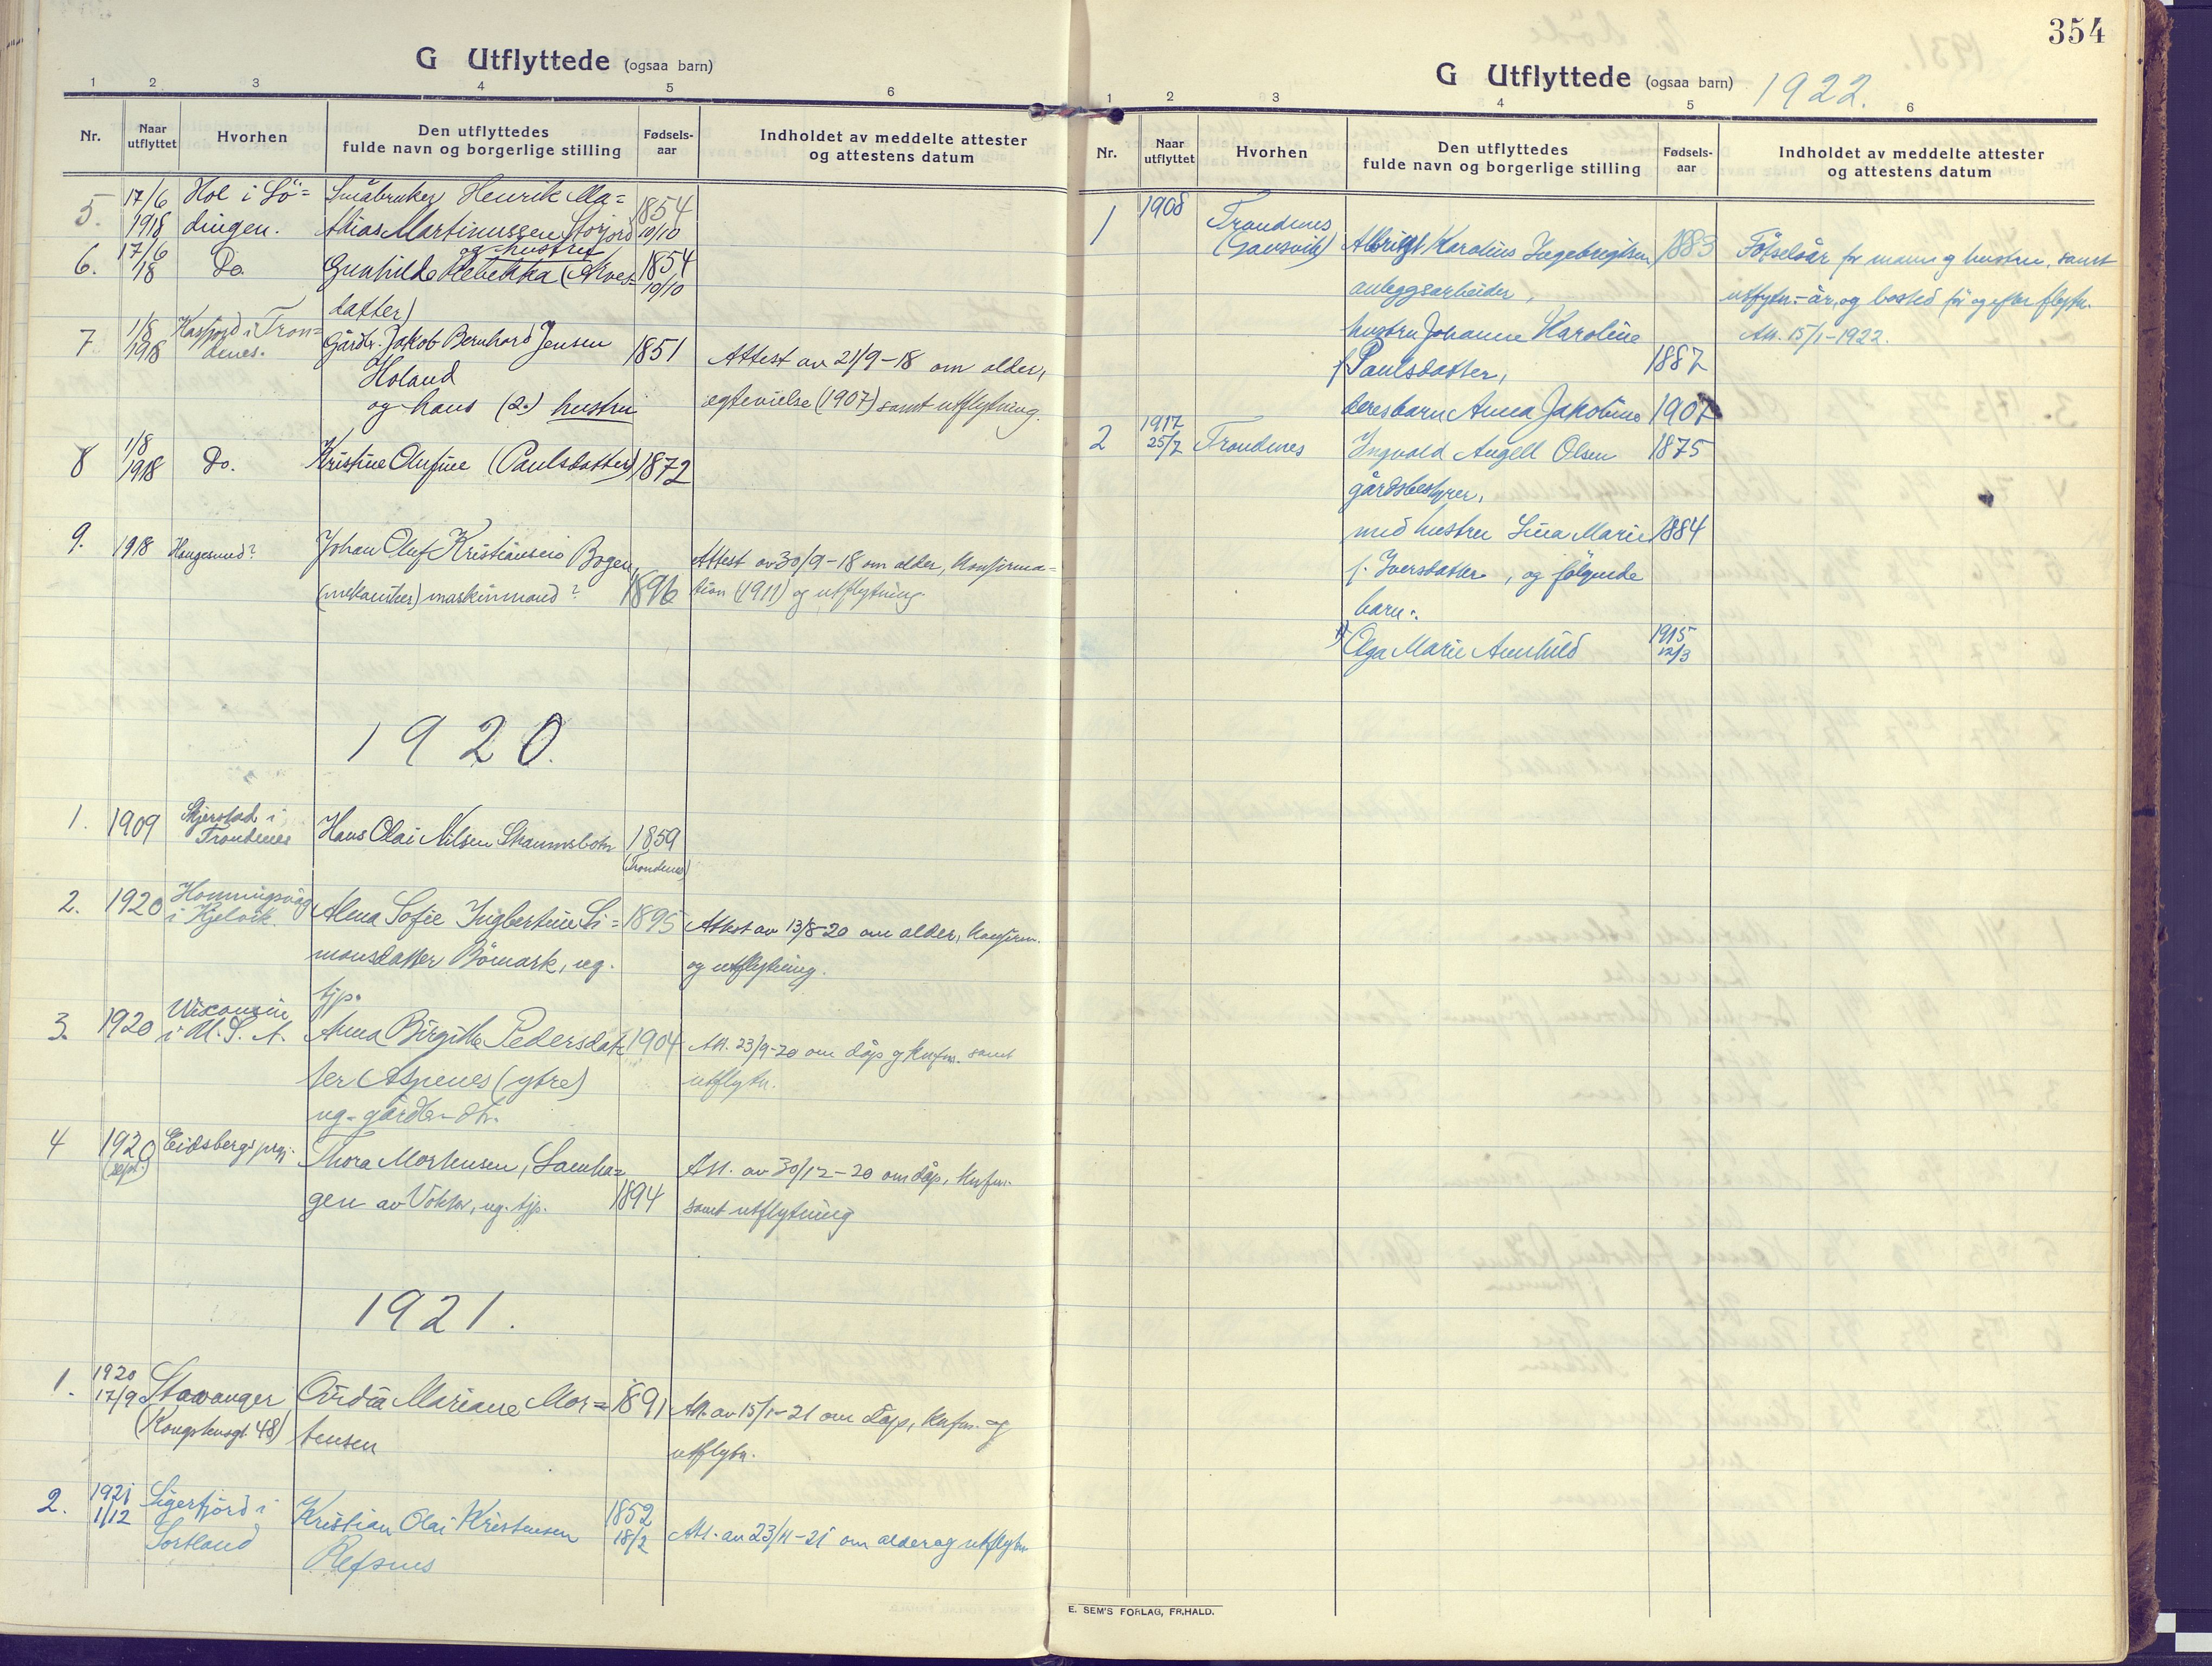 G Utflyttede (ogsaa barn)
1 2 3 4 5 6
Nr. Naar utflyttet Hvorhen Den utflyttedes fulde navn og borgerlige stilling Fødsels-aar Indholdet av meddelte attester og attestens datum
5. 17/6 1918 Hol i Lö= dingen. Småbruker Henrik Ma= 1854
thias Martinussen Storjord 10/10
og hustru
6. 17/6 18 Do. Gunhilda Rebekka (Arves= 1854
datter) 10/10
7 1/8 1918 Kasfjord i Tron= denes. Gårdbr. Jakob Bernhard Jensen 1851 Attest av 21/9-18 om alder,
Holand
og hans (2.) hustru egtevielse (1907) samt utflytning.
8 1/8 1918 Do. Kristine Olufine (Paulsdatter) 1872
9. 1918 Haugesund? Johan Oluf Kristiansen Bogen, Attest av 30/9-18 om alder, konfirma=
(mekaniker) maskinmand? 1896 tion (1911) og utflytning.
1920.
1. 1909 Skjerstad i Trondenes Hans Olai Nilsen Skaumsbotn 1859
(Trondenes)
2. 1920 Honningsvåg i Kjelvik. Alma Sofie Ingbertine Si= 1895 Attest av 13/8-20 om alder, konfirm.
monsdatter Bömark, ug. og utflytning.
tjp.
3. 1920 Wisconsin i U.S.A. Anna Birgitte Pedersdat= 1904 Att. 23/9-20 om dåp og konfm. samt
ter Aspenes (ytre) utflytn.
ug. gårdbr-dtr.
4 1920 (sept.) Eidsberg prgj. Thora Mortensen, Lamha=
Att. av 30/12-20 om dåp, konfm.
gen av Voktor, ug. tjp. 1894 samt utflytning
1921.
1. 1920 17/9 Stavanger Ovidia Mariane Mor= 1891 Att. av 15/1-21 om dåp, konfm. og
(Kongshusgt. 48) tensen utflytn.
2. 1921 1/12 Sigerfjord i Kristian Olai Kristensen 1852 18/2 Att. av 23/11-21 om alder og utflytn
Sortland Refsnes
354
G Utflyttede (ogsaa barn) 1922.
1 2 3 4 5 6
Nr. Naar utflyttet Hvorhen Den utflyttedes fulde navn og borgerlige stilling Fødsels-aar Indholdet av meddelte attester og attestens datum
1 1908 Trondenes
(Gausvik) Albrigt Karolius Ingebrigtsen, 1883 Fötselsår for mann og hustru, samt
anleggsarbeider, utflytn.-år, og bosted för og efter flytn.
hustru Johanne Karoline Att. 15/1-1922.
f. Paulsdatter, 1887
deres barn Anna Jakobine 1907
2 1917 25/7 Trondenes Ingvald Angell Olsen 1875
gårdsbestyrer,
med hustru Lina Marie 1884
f. Iversdatter, og fölgende
barn:
1) Olga Marie Aunhild 1915 12/3
E. SEM'S FORLAG, FR.HALD.